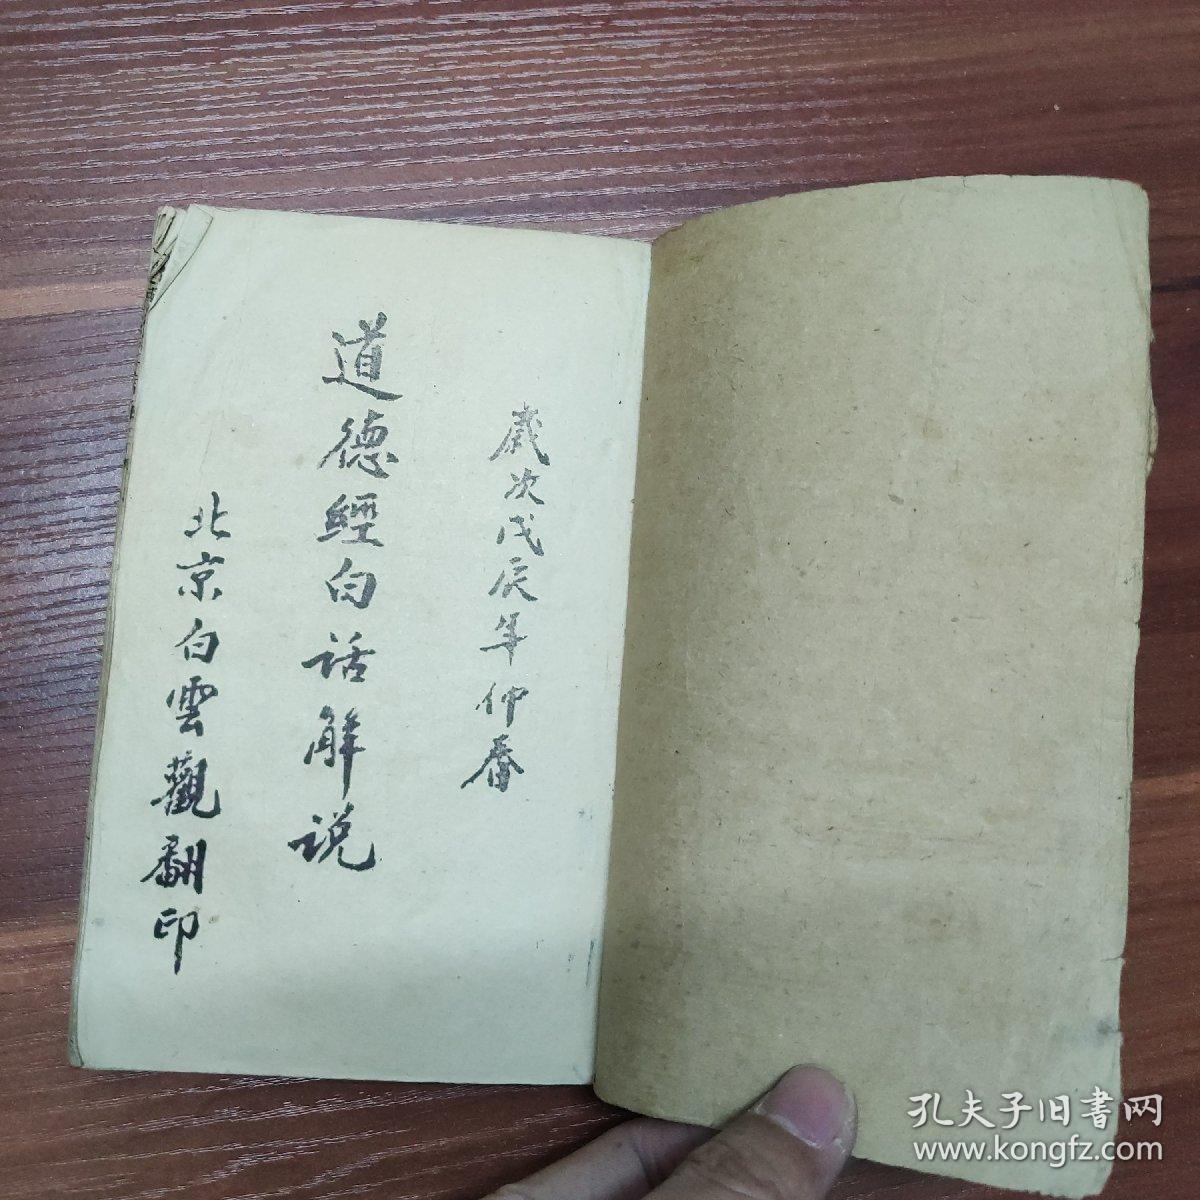 歲次戊辰年仲春
道德經白话解说
北京白雲觀翻印
孔夫子旧書网
www.kongfz.com